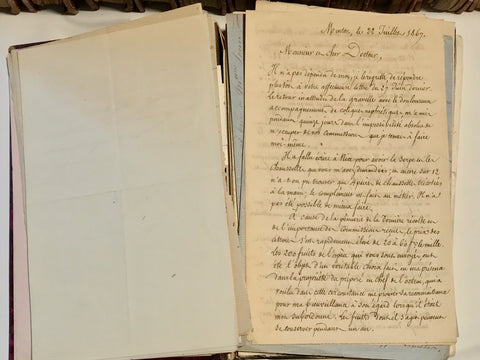 Menton, le 22 Juillet 1867.
Monsieur et cher Docteur,
Il n'a pas dépendu de moi, je le regrette de répondre
plus tôt à votre affectueuse lettre du 27 Juin dernier.
le retour inattendu de la gravelle avec le douloureux
accompagnement de coliques néphrétiques, m'a mis
pendant quinze jours dans l'impossibilité absolue de
m'occuper de vos commissions que je tenais à faire
moi-même.
Il a fallu écrire à Nice pour avoir la Serge et les
Chaussettes que vous m'avez demandées; encore sur 12
n'a-t-on pu trouver que 4 paires de chaussettes tricotées
à la main; le complément est fait au métier. Il n'a
pas été possible de mieux faire.
A cause de la pénurie de la dernière récolte et
de l'importance des commissions reçues, le prix des
citrons s'est rapidement élevé de 20 à 60 f. le mille.
les 200 fruits de l'espèce que vous sont envoyés, ont
été l'objet d'un véritable choix fait en ma présence
dans la propriété du préposé en chef de l'octroi, qui a
voulu dans cette circonstance me prouver sa reconnaissance
pour ma bienveillance à son égard lorsqu'il était
mon subordonné. Les fruits dont il s'agit peuvent
se conserver pendant un an.